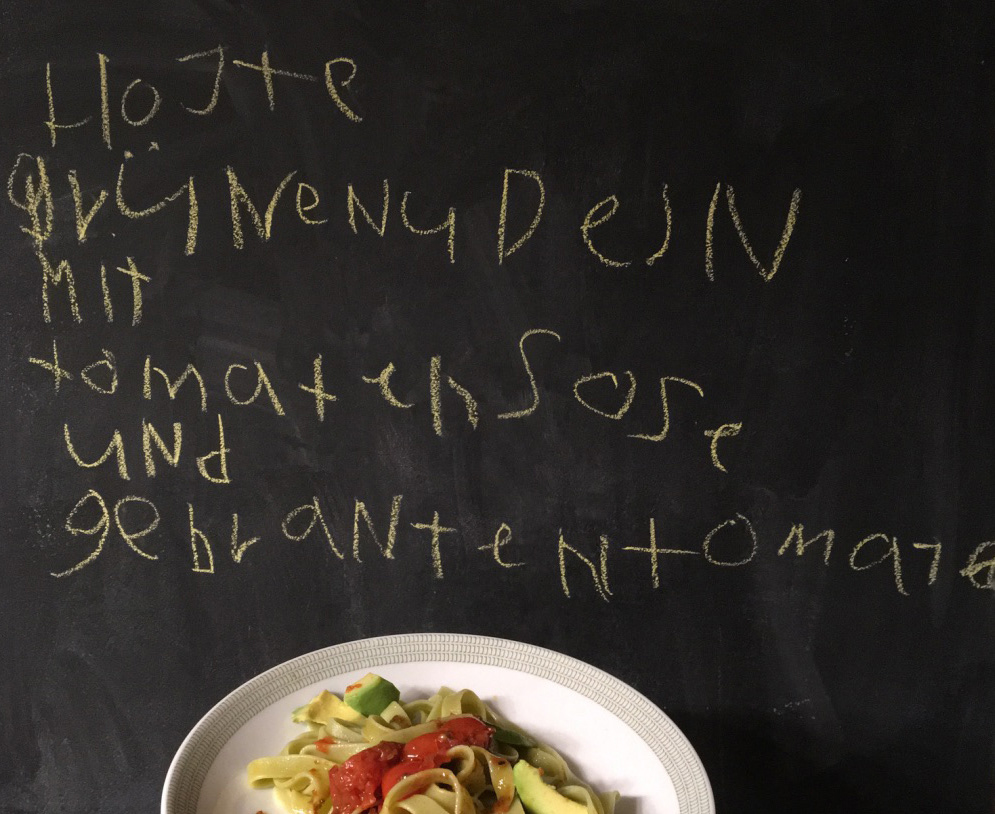 HoJte
grüNeNuDelN
MIt
tomatenSoSe
uNd
gebraNteNtomate